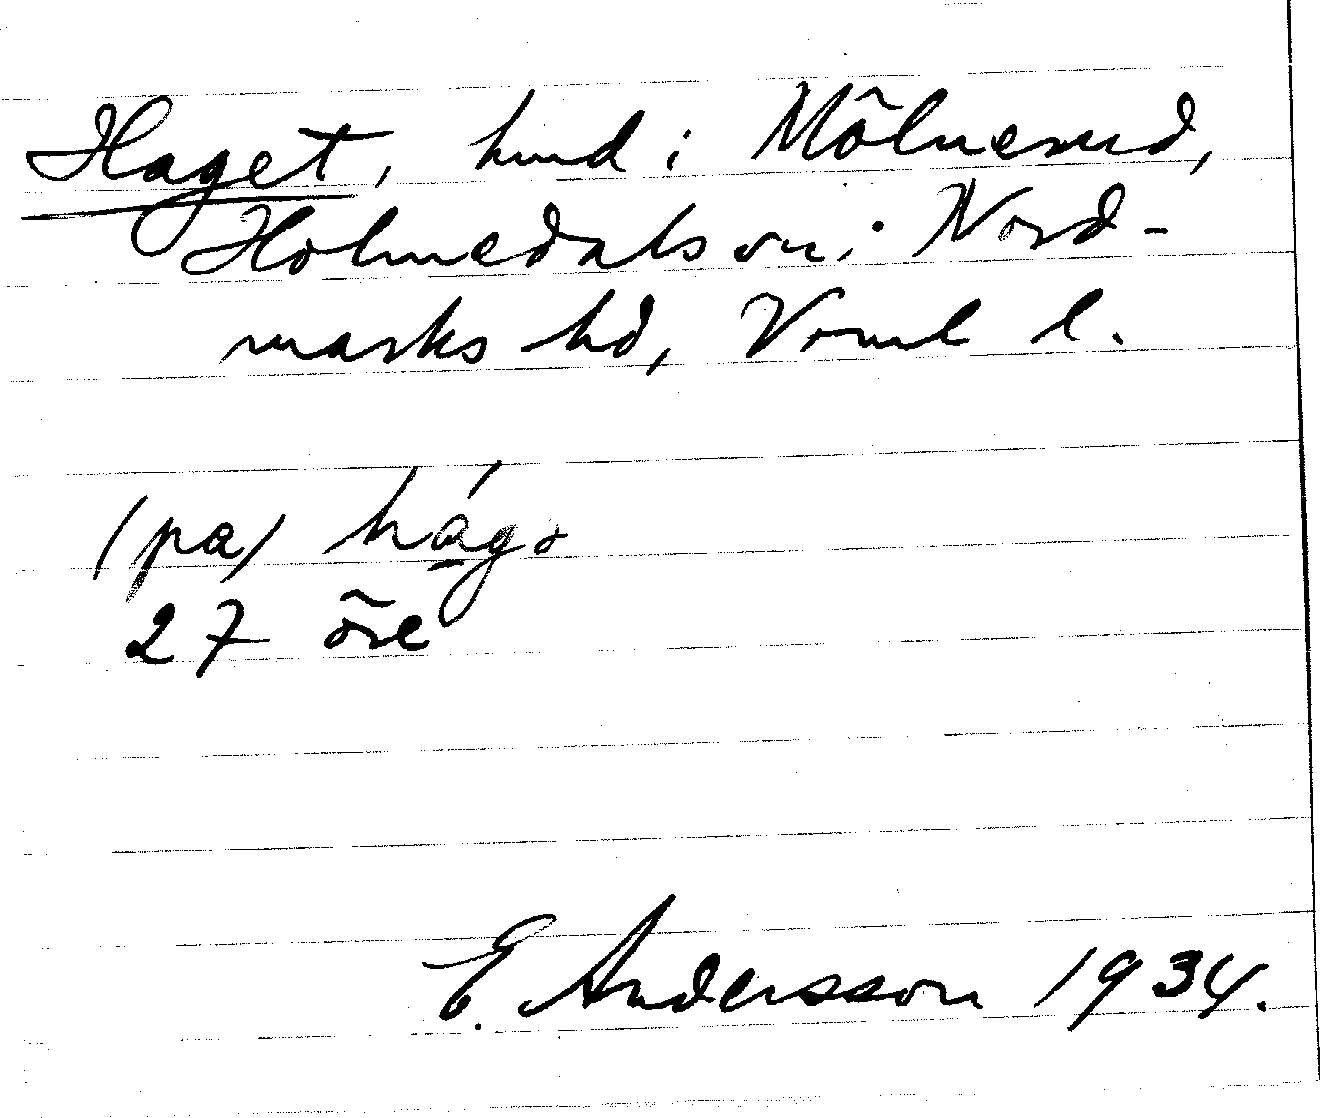 Haget, hmd i Mölnerud,
Holmedals sn, Nord-
marks hd, Vrml l.
(pa) hág
27 öre
E. Andersson 1934.